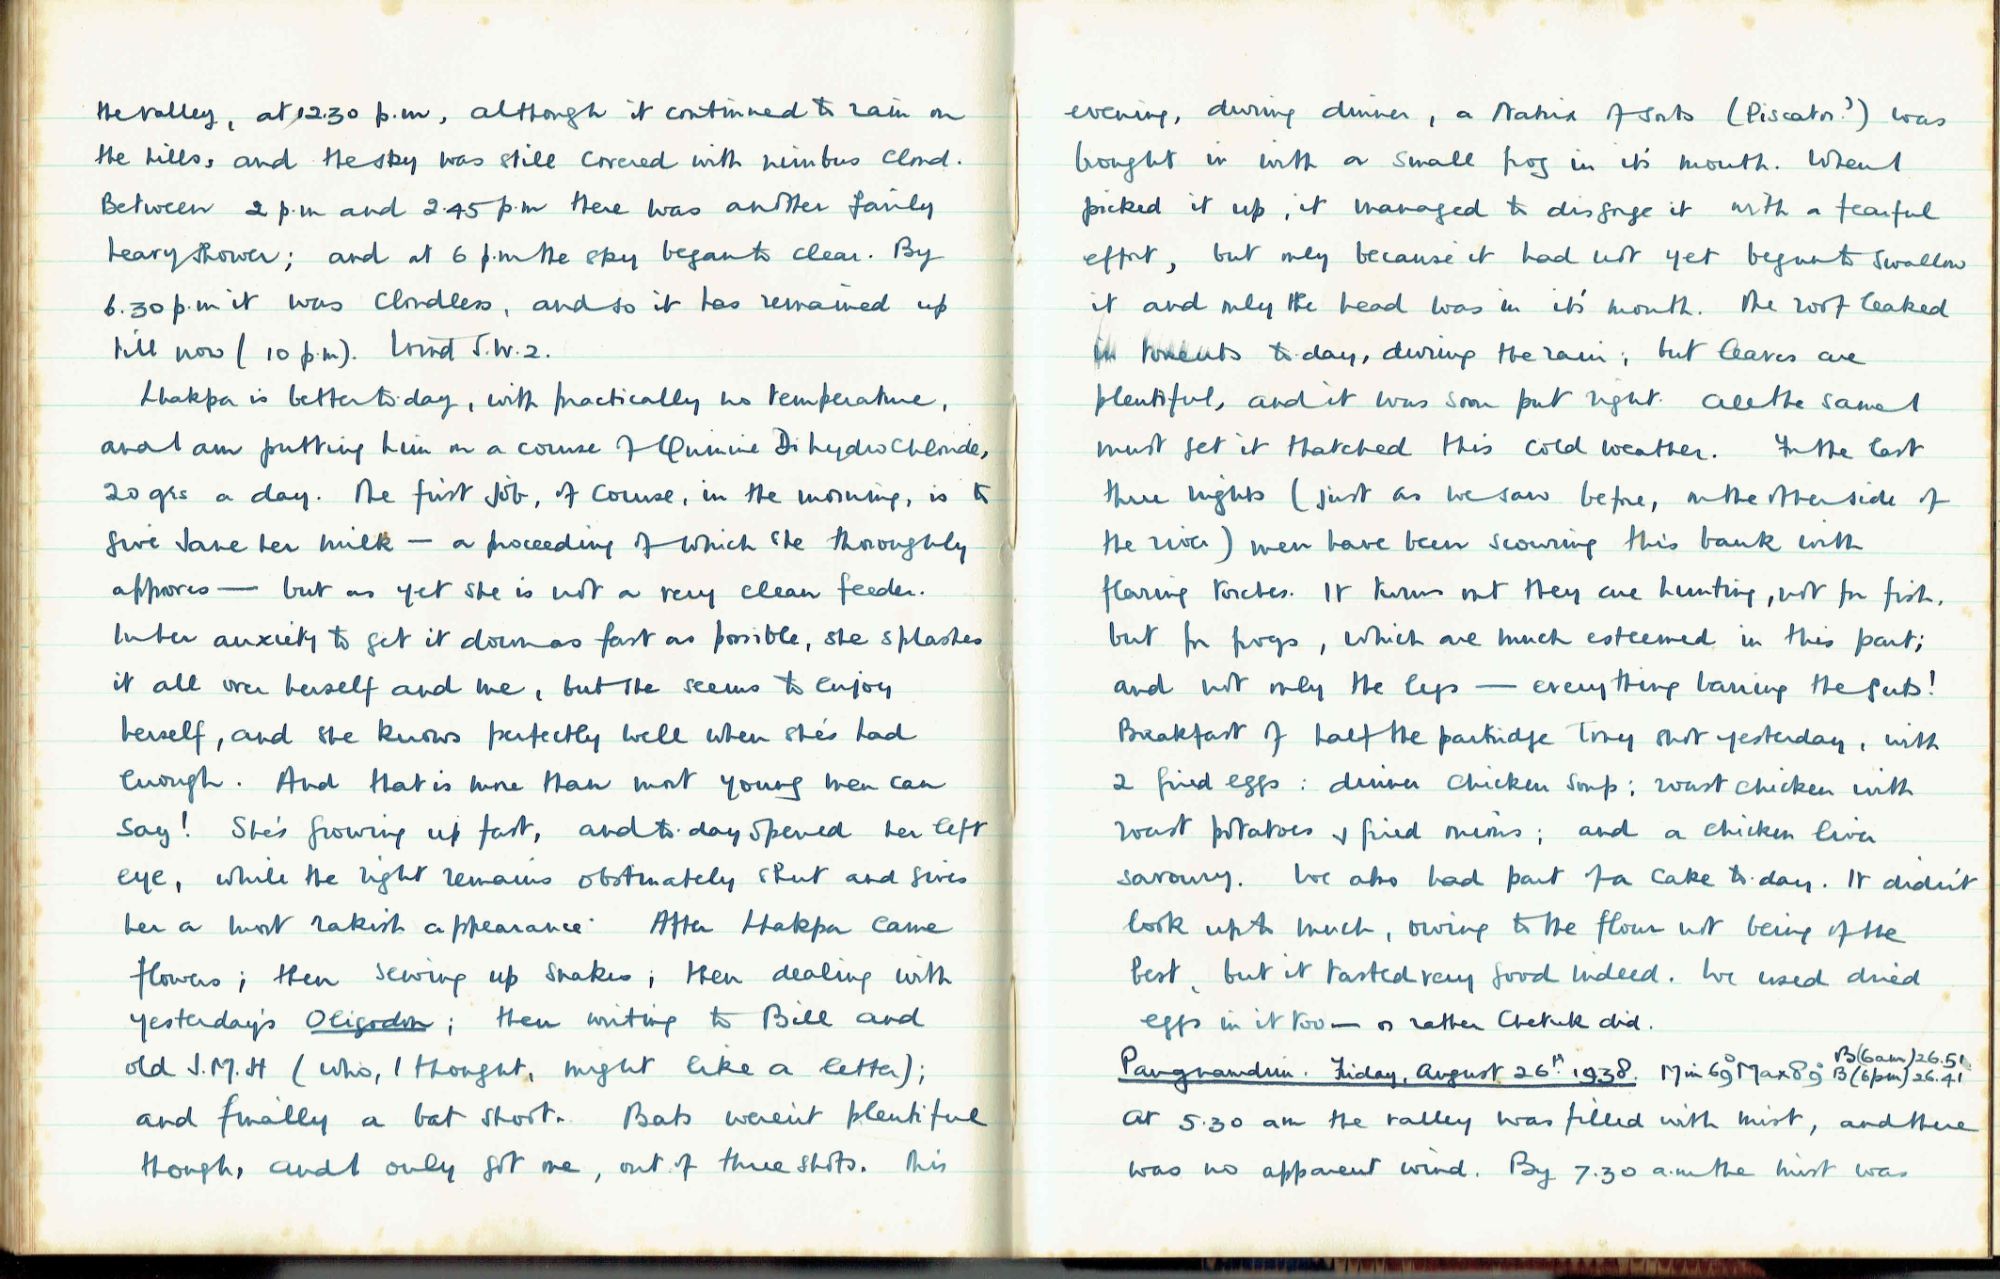 the valley, at 12.30 p.m, although it continued to rain on
the hills, and the sky was still covered with nimbus cloud.
Between 2 p.m and 2.45 p.m there was another fairly
heavy shower; and at 6 p.m the sky began to clear. By
6.30 p.m it was cloudless, and so it has remained up
till now (10 p.m). Wind S.W.2.
Lhakpa is better to-day, with practically no temperature,
and I am putting him on a course of Quinine Dihydrochloride,
20 grs a day. The first job, of course, in the morning, is to
give Jane her milk — a proceeding of which she thoroughly
approves — but as yet she is not a very clean feeder.
In her anxiety to get it down as fast as possible, she splashes
it all over herself and me, but she seems to enjoy
herself, and she knows perfectly well when she's had
enough. And that is more than most young men can
say! She's growing up fast, and to-day opened her left
eye, while the right remains obstinately shut and gives
her a most rakish appearance. After Lhakpa came
flowers; then sewing up snakes; then dealing with
yesterday's Oligodon; then writing to Bill and
old J.M.H (who, I thought, might like a letter);
and finally a bat shoot. Bats weren't plentiful
though, and I only got one, out of three shots. This
evening, during dinner, a Natrix of sorts (Piscator?) was
bought in with a small frog in it's mouth. When I
picked it up, it managed to disgorge it with a fearful
effort, but only because it had not yet begun to swallow
it and only the head was in it's mouth. The roof leaked
in torrents to-day, during the rain; but leaves are
plentiful, and it was soon put right. All the same I
must get it thatched this cold weather. In the last
three nights (just as we saw before, on the other side of
the river) men have been scouring this bank with
flaring torches. It turns out they are hunting, not for fish,
but for frogs, which are much esteemed in this part;
and not only the legs — everything barring the guts!
Breakfast of half the partridge Tony shot yesterday, with
2 fried eggs: dinner chicken soup; roast chicken with
roast potatoes & fried onions; and a chicken liver
savoury. We also had part of a cake to-day. It didn't
look up to much, owing to the flour not being of the
best, but it tasted very good indeed. We used dried
eggs in it too — or rather Chetuk did.
Pangnamdim. Friday, August 26th 1938. Min 69° Max 89° B(6am) 26.51 B(6pm) 26.41
At 5.30 am the valley was filled with mist, and there
was no apparent wind. By 7.30 a.m the mist was